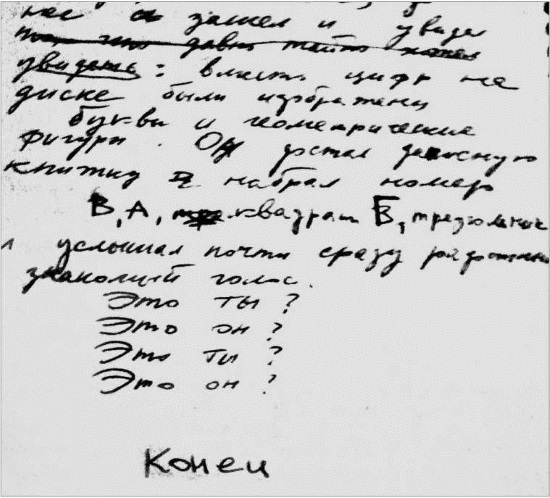 нас и зашел и увидел
то, что давно тайно хотел
увидеть: вместо цифр на
диске были изображены
буквы и геометрические
фигуры. Он достал записную
книжку и набрал номер
В, А, квадрат, Б, треугольник
и услышал почти сразу радостно
знакомый голос.
Это ты?
Это он?
Это ты?
Это он?
Конец